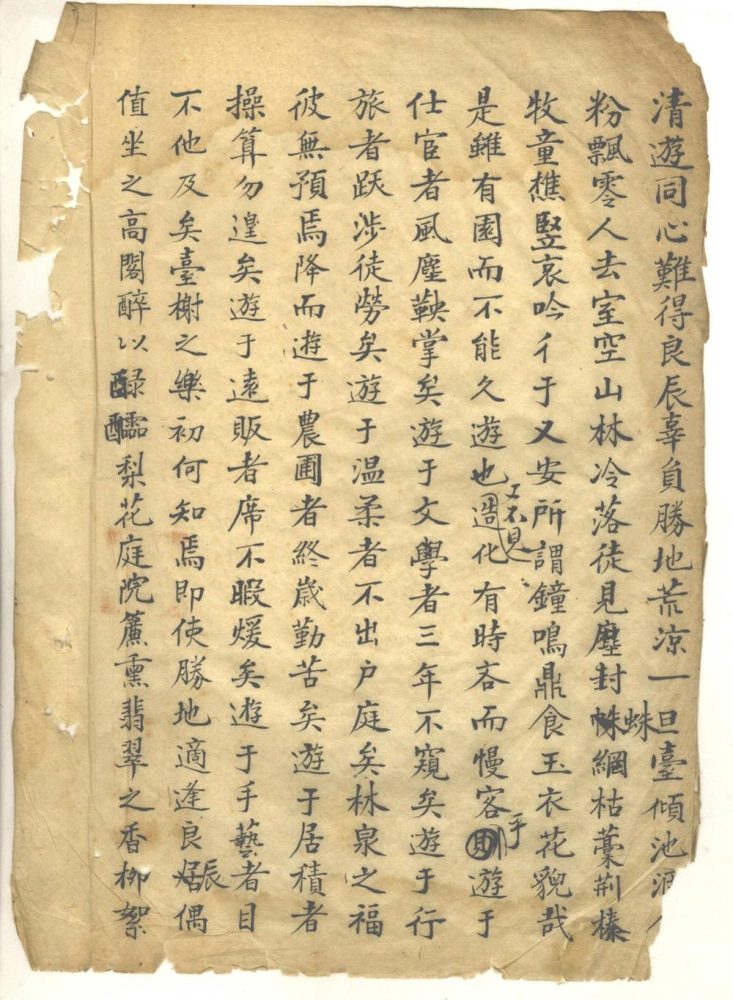 清遊同心難得良辰辜負勝地荒涼一旦臺傾池
粉飄零人去室空山林冷落徒見塵封蛛網枯藁荊榛
牧童樵竪哀吟彳于又安所謂鐘鳴鼎食玉衣花貌哉
是雖有園而不能久遊也造化工不見有時吝而慢客乎遊于
仕官者風塵鞅掌矣遊于文學者三年不窺矣遊于行
旅者跃涉徒勞矣遊于温柔者不出户庭矣林泉之福
彼無預焉降而遊于農圃者終歲勤苦矣遊于居積者
操算勿遑矣遊于遠販者席不暇煖矣遊于手藝者目
不他及矣臺榭之樂初何知焉即使勝地適逢良辰偶
值坐之高閣醉以醁醽梨花庭院簾熏翡翠之香柳絮